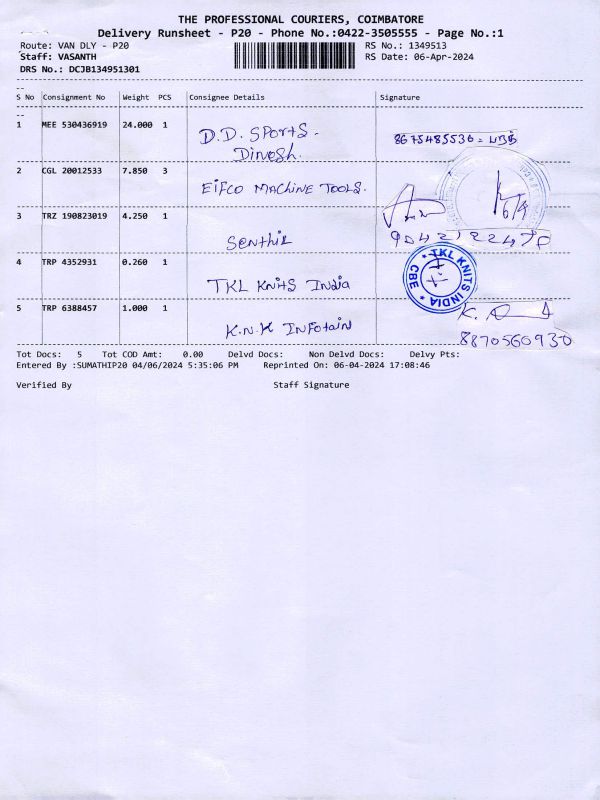 THE PROFESSIONAL COURIERS, COIMBATORE
Delivery Runsheet - P20 - Phone No.:0422-3505555 - Page No.:1
Route: VAN DLY - P20
RS No.: 1349513
Staff: VASANTH
RS Date: 06-Apr-2024
DRS No.: DCJB134951301
S No Consignment No Weight PCS Consignee Details Signature
1 MEE 530436919 24.000 1 D.D. Sports.
Dinesh.
8675485536
2 CGL 20012533 7.850 3 EIFCO MACHINE TOOLS.
6/4
3 TRZ 190823019 4.250 1 Senthil
9042122470
4 TRP 4352931 0.260 1 TKL Knits India
TKL KNITS INDIA
CBE
5 TRP 6388457 1.000 1 K.N.K Infotain
8870560930
Tot Docs: 5 Tot COD Amt: 0.00 Delvd Docs: Non Delvd Docs: Delvy Pts:
Entered By :SUMATHIP20 04/06/2024 5:35:06 PM Reprinted On: 06-04-2024 17:08:46
Verified By Staff Signature